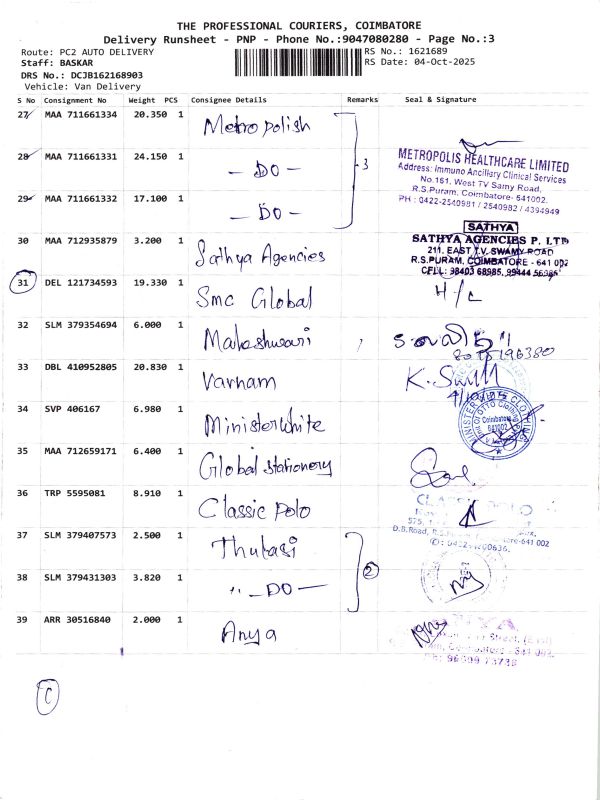 THE PROFESSIONAL COURIERS, COIMBATORE
Delivery Runsheet - PNP - Phone No.:9047080280 - Page No.:3
Route: PC2 AUTO DELIVERY
RS No.: 1621689
Staff: BASKAR
RS Date: 04-Oct-2025
DRS No.: DCJB162168903
Vehicle: Van Delivery
S No Consignment No Weight PCS Consignee Details Remarks Seal & Signature
27 MAA 711661334 20.350 1 Metropolish
28 MAA 711661331 24.150 1 - DO - 3
METROPOLIS HEALTHCARE LIMITED
Address: Immuno Ancillary Clinical Services
No.161, West TV Samy Road,
R.S.Puram, Coimbatore- 641002.
PH : 0422-2540981 / 2540982 / 4394949
29 MAA 711661332 17.100 1 - DO -
SATHYA
30 MAA 712935879 3.200 1 Sathya Agencies
SATHYA AGENCIES P. LTD
211, EAST T.V. SWAMY ROAD
R.S.PURAM, COIMBATORE - 641 002
CELL: 98403 68985, 99444 56365
31 DEL 121734593 19.330 1 Smc Global H/C
32 SLM 379354694 6.000 1 Maheshwari
33 DBL 410952805 20.830 1 Varham
34 SVP 406167 6.980 1 Ministerwhite
MINISTER WHITE CLOTHING
Coimbatore
641002
35 MAA 712659171 6.400 1 Global Stationery
36 TRP 5595081 8.910 1 Classic Polo
CLASSIC POLO
D.B.Road, R.S.
37 SLM 379407573 2.500 1 Thulasi
38 SLM 379431303 3.820 1 " - DO - 2
39 ARR 30516840 2.000 1 Anya
C